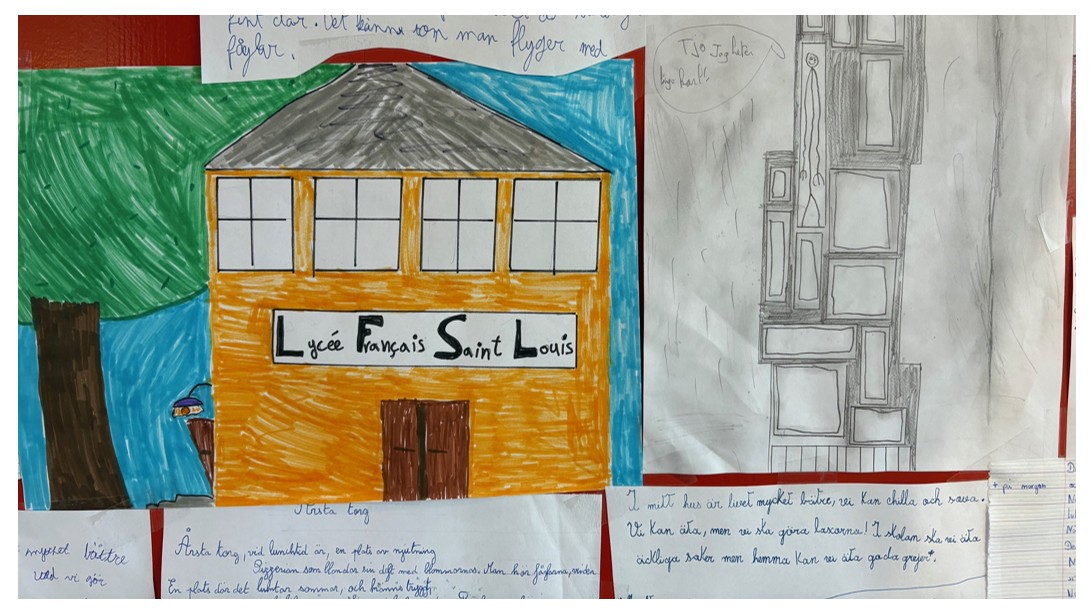 fint där. Det känns som man flyger med
fåglar.
Tjo Jag heter
Lycée Français Saint Louis
Årsta torg
mycket bättre
vad vi gör
Årsta torg, vid lunchtid är, en plats av njutning
som blandar sin doft med blommornas. Man hör fåglarna, vinden
En plats där det luktar sommar, och känns tryggt,
I mitt hus är livet mycket bätre, vi kan chilla och sova.
Vi kan äta, men vi ska göra läxorna! I skolan ska vi äta
äckliga saker men hemma kan vi äta goda grejer*.
* på morgon